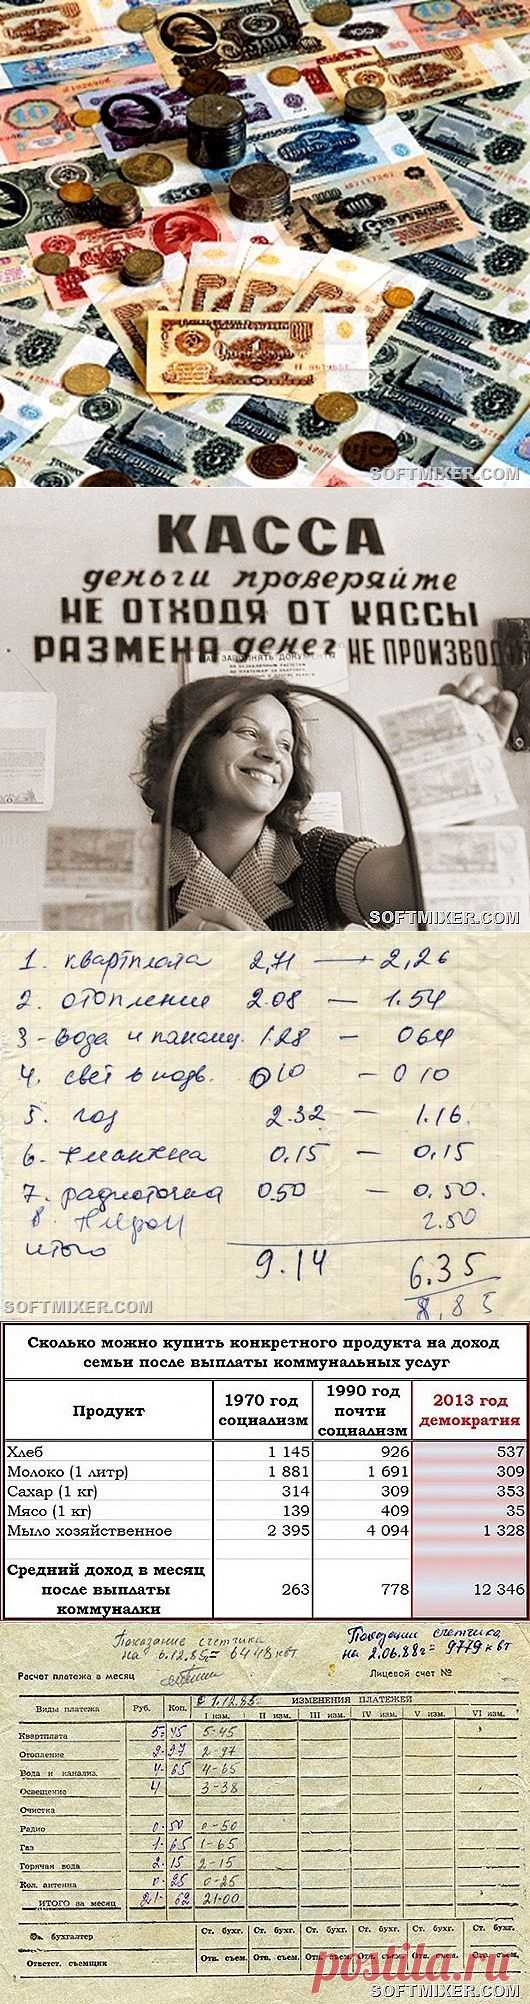 SOFTMIXER.COM
КАССА
деньги проверяйте
НЕ ОТХОДЯ ОТ КАССЫ
РАЗМЕНА денег НЕ ПРОИЗВОД
SOFTMIXER.COM
1. квартплата 2,71 — 2,26
2. отопление 2.08 — 1.54
3 - вода и канализ. 1.28 — 064
4. свет в подв. 010 — 010
5. газ 2.32 — 1.16.
6. 0.15 — 0.15
7. радиоточка 0.50 — 0.50.
8. 2.50
итого 9.14 6.35
8,85
SOFTMIXER.COM
Сколько можно купить конкретного продукта на доход
семьи после выплаты коммунальных услуг
Продукт 1970 год социализм 1990 год почти социализм 2013 год демократия
Хлеб 1 145 926 537
Молоко (1 литр) 1 881 1 691 309
Сахар (1 кг) 314 309 353
Мясо (1 кг) 139 409 35
Мыло хозяйственное 2 395 4 094 1 328
Средний доход в месяц
после выплаты
коммуналки 263 778 12 346
Показание счетчика
на 6.12.85г= 6448 квт
Показании счетчика
на 2.06.88г= 9779 квт
Расчет платежа в месяц Лицевой счет №
Виды платежа Руб. Коп. С 1.12.85. ИЗМЕНЕНИЯ ПЛАТЕЖЕЙ
I изм. II изм. III изм. IV изм. V изм. VI изм.
Квартплата 5 45 5-45
Отопление 2-97
Вода и канализ. 4 65 4-65
Освещение 4 3-38
Очистка
Радио 0 50 0-50
Газ 1 65 1-65
Горячая вода 2 15 2-15
Кол. антенна 0 25 0-25
ИТОГО за месяц 21 62 21-00
Ст. бухгалтер Ст. бухг. Ст. бухг. Ст. бухг. Ст. бухг. Ст. бухг. Ст. бухг.
Ответст. съемщик Отв. съем. Отв. съем. Отв. съем. Отв. съем.
postila.ru
SOFTMIXER.COM